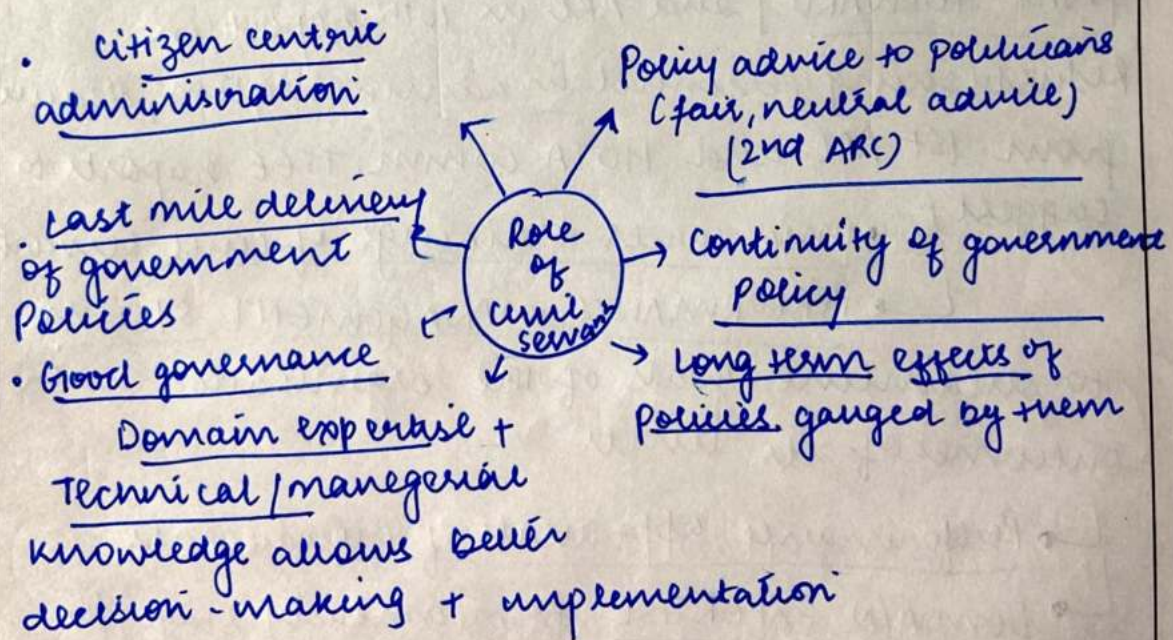 • citizen centric
administration
Policy advice to politicians
(fair, neutral advice)
(2nd ARC)
• Last mile delivery
of government
Policies
Role
of
civil
servants
Continuity of government
policy
• Good governance
Long term effects of
policies gauged by them
Domain expertise +
Technical / manegerial
knowledge allows better
decision-making + implementation